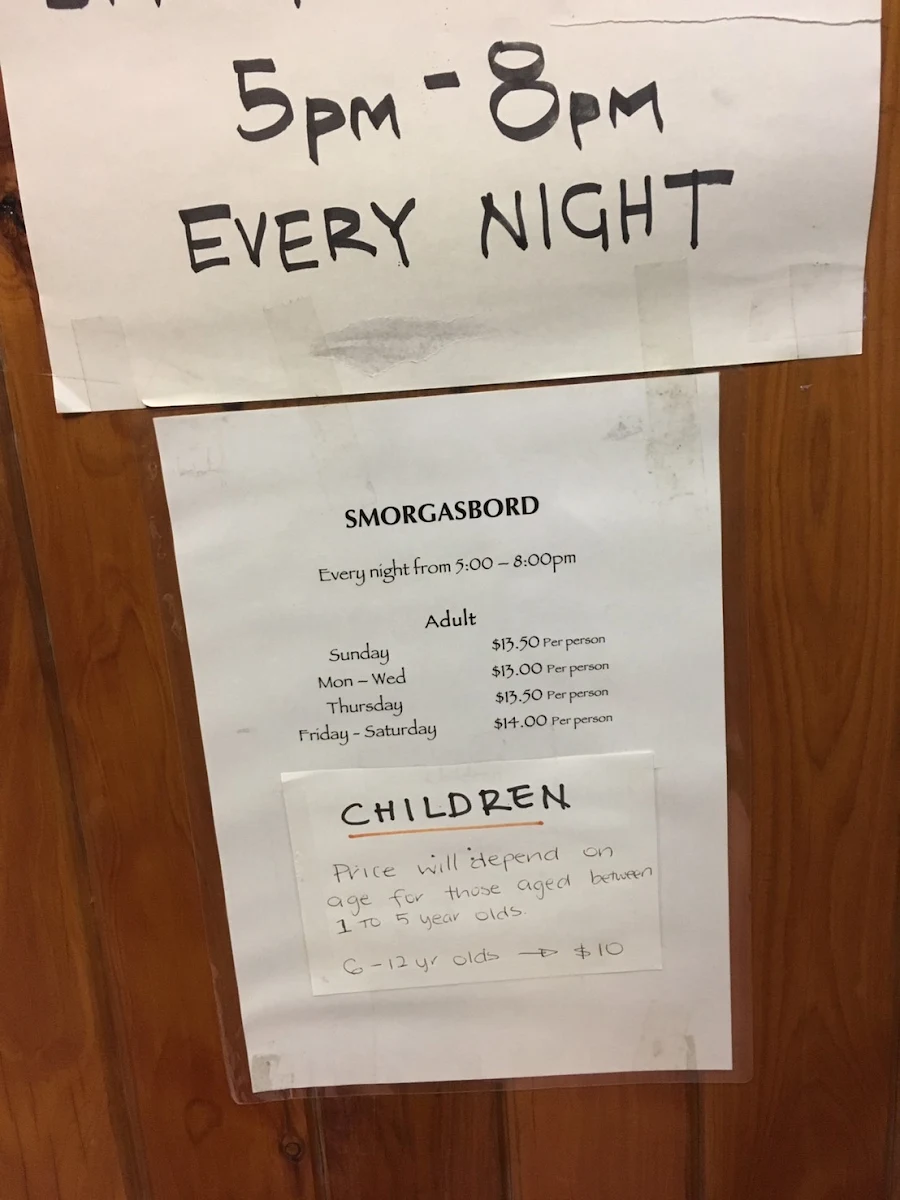 5PM - 8PM
EVERY NIGHT
SMORGASBORD
Every night from 5:00 – 8:00pm
Adult
Sunday $13.50 Per person
Mon – Wed $13.00 Per person
Thursday $13.50 Per person
Friday - Saturday $14.00 Per person
CHILDREN
Price will depend on
age for those aged between
1 TO 5 year olds.
6-12 yr olds → $10